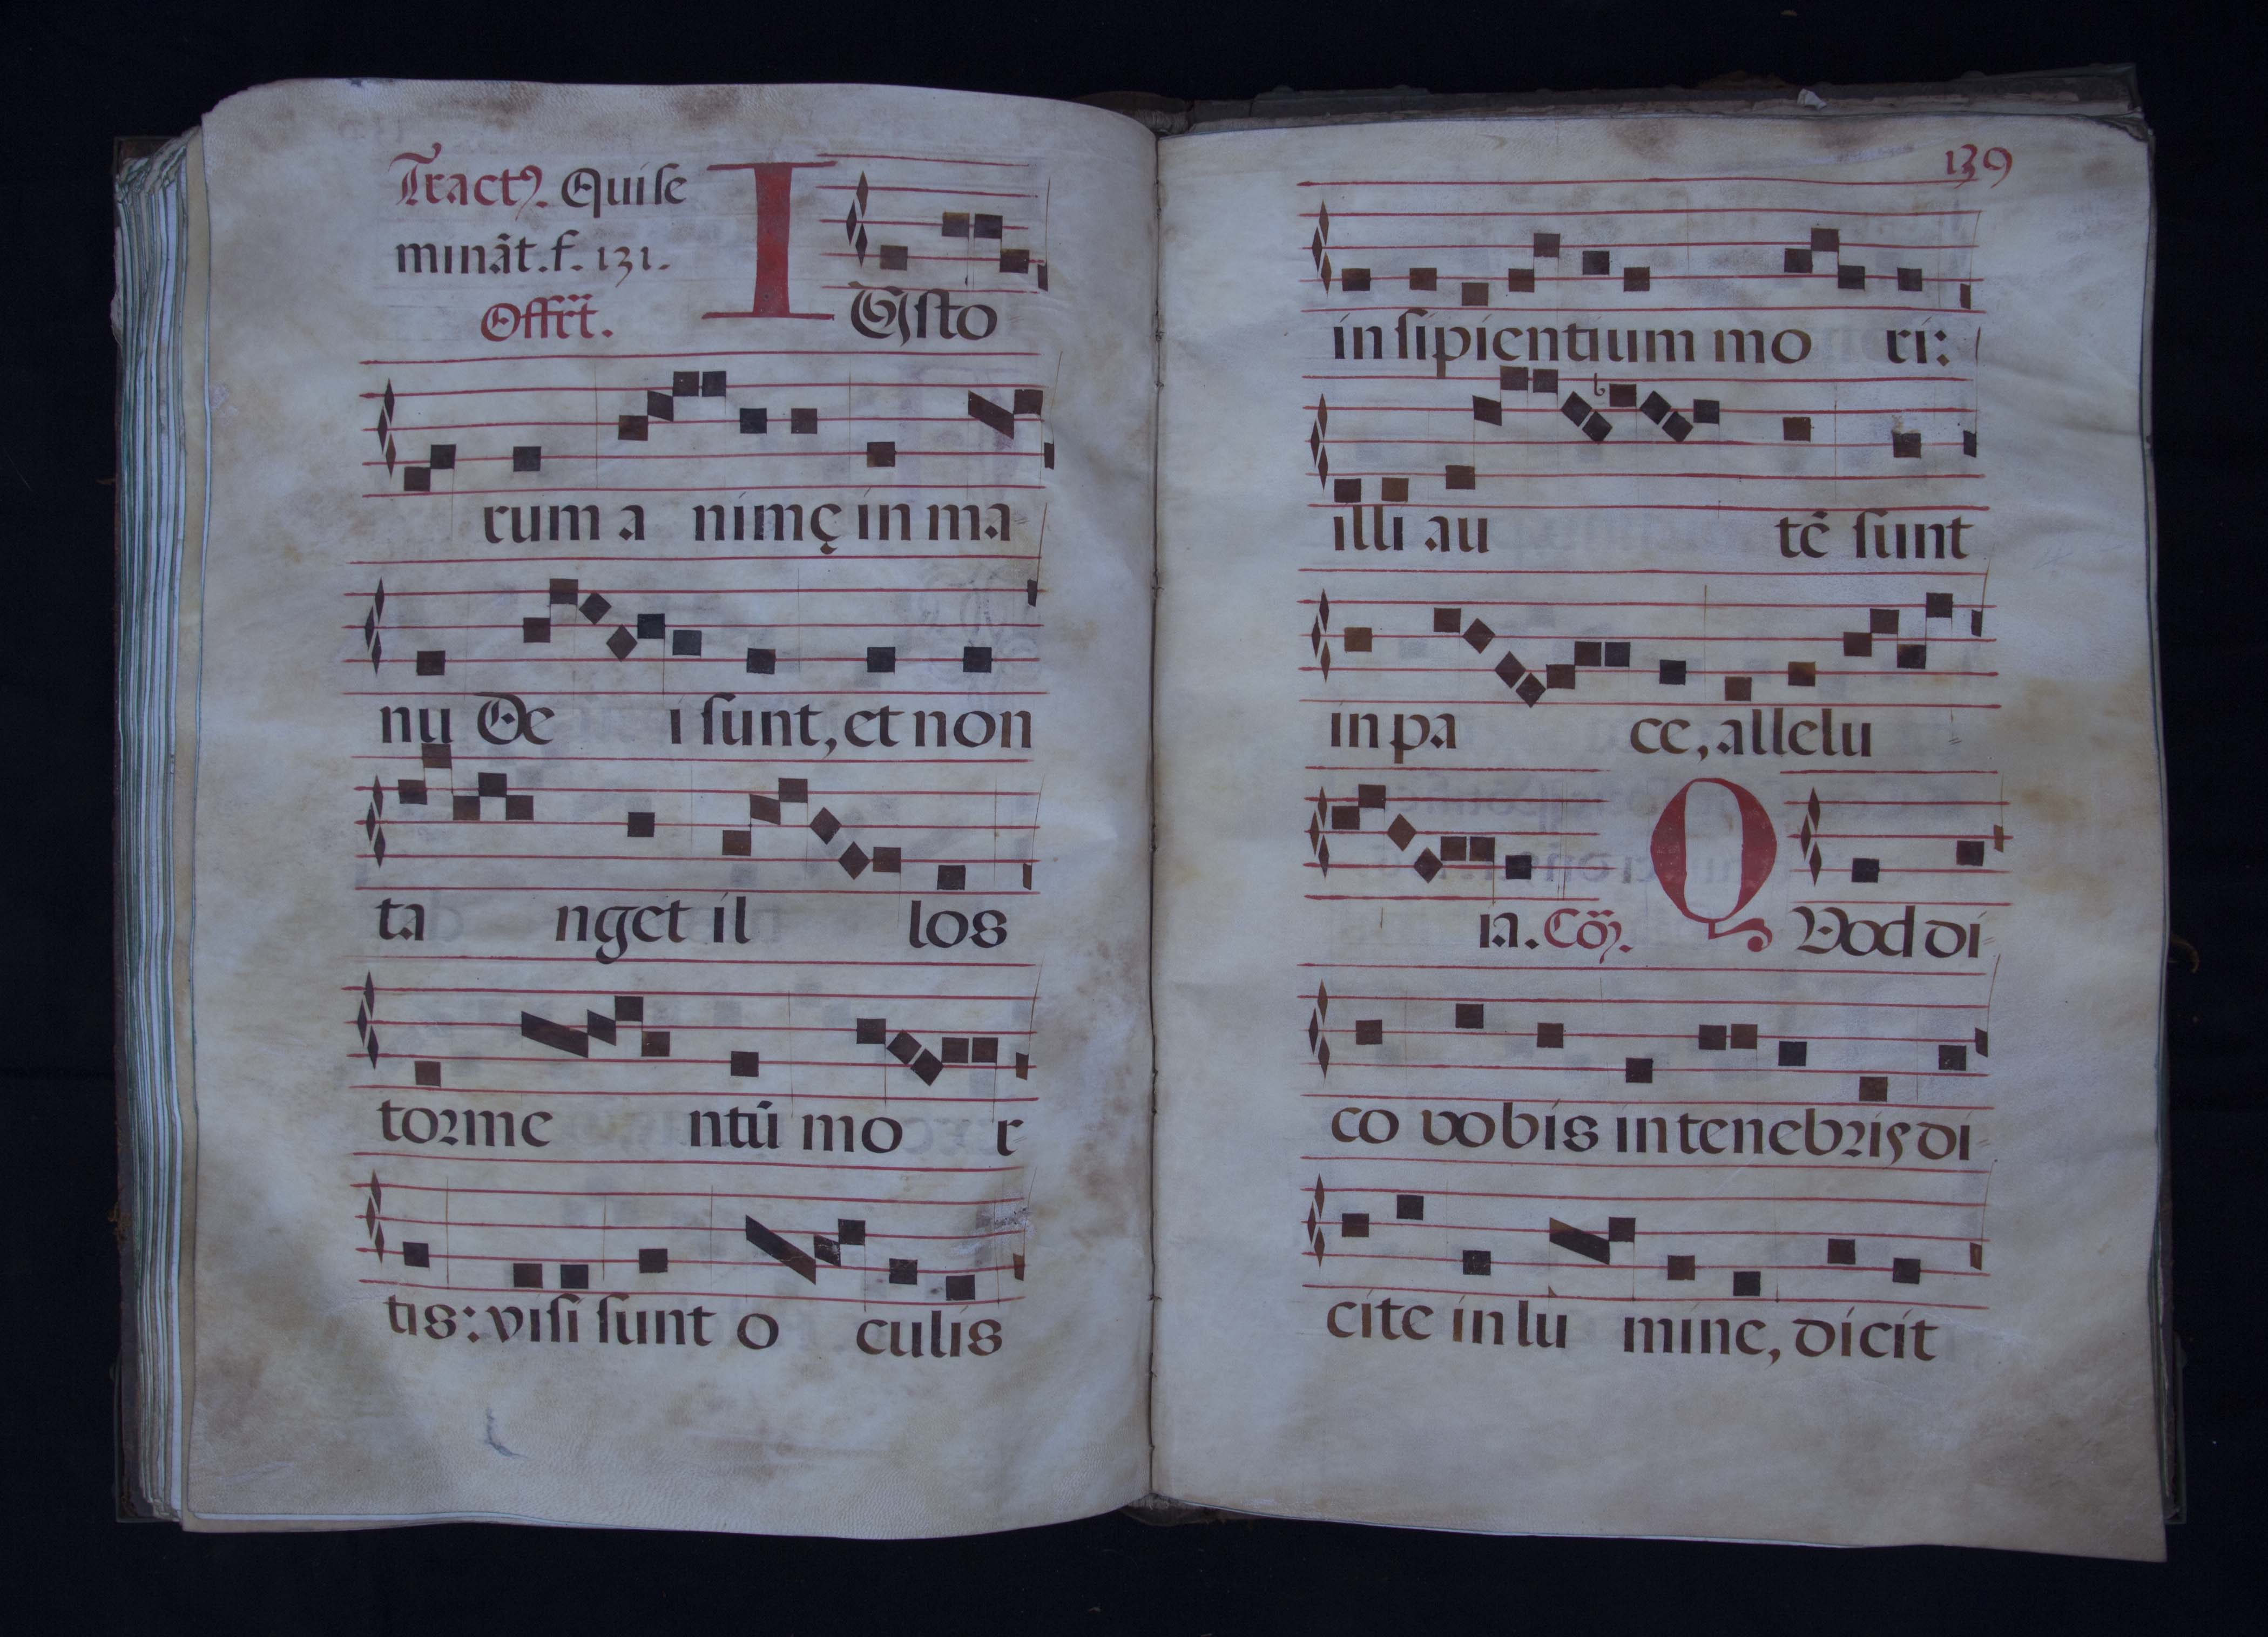 Tractꝰ. Qui se
minãt. f. 131.
Offrt̃.
I Usto
rum a nimę in ma
nu De i sunt, et non
ta nget il los
torme ntũ mo r
tis: visi sunt o culis
139
insipientium mo ri:
illi au tẽ sunt
in pa ce, allelu
ia. Cõ. Q Uod di
co vobis in tenebris di
cite in lu mine, dicit